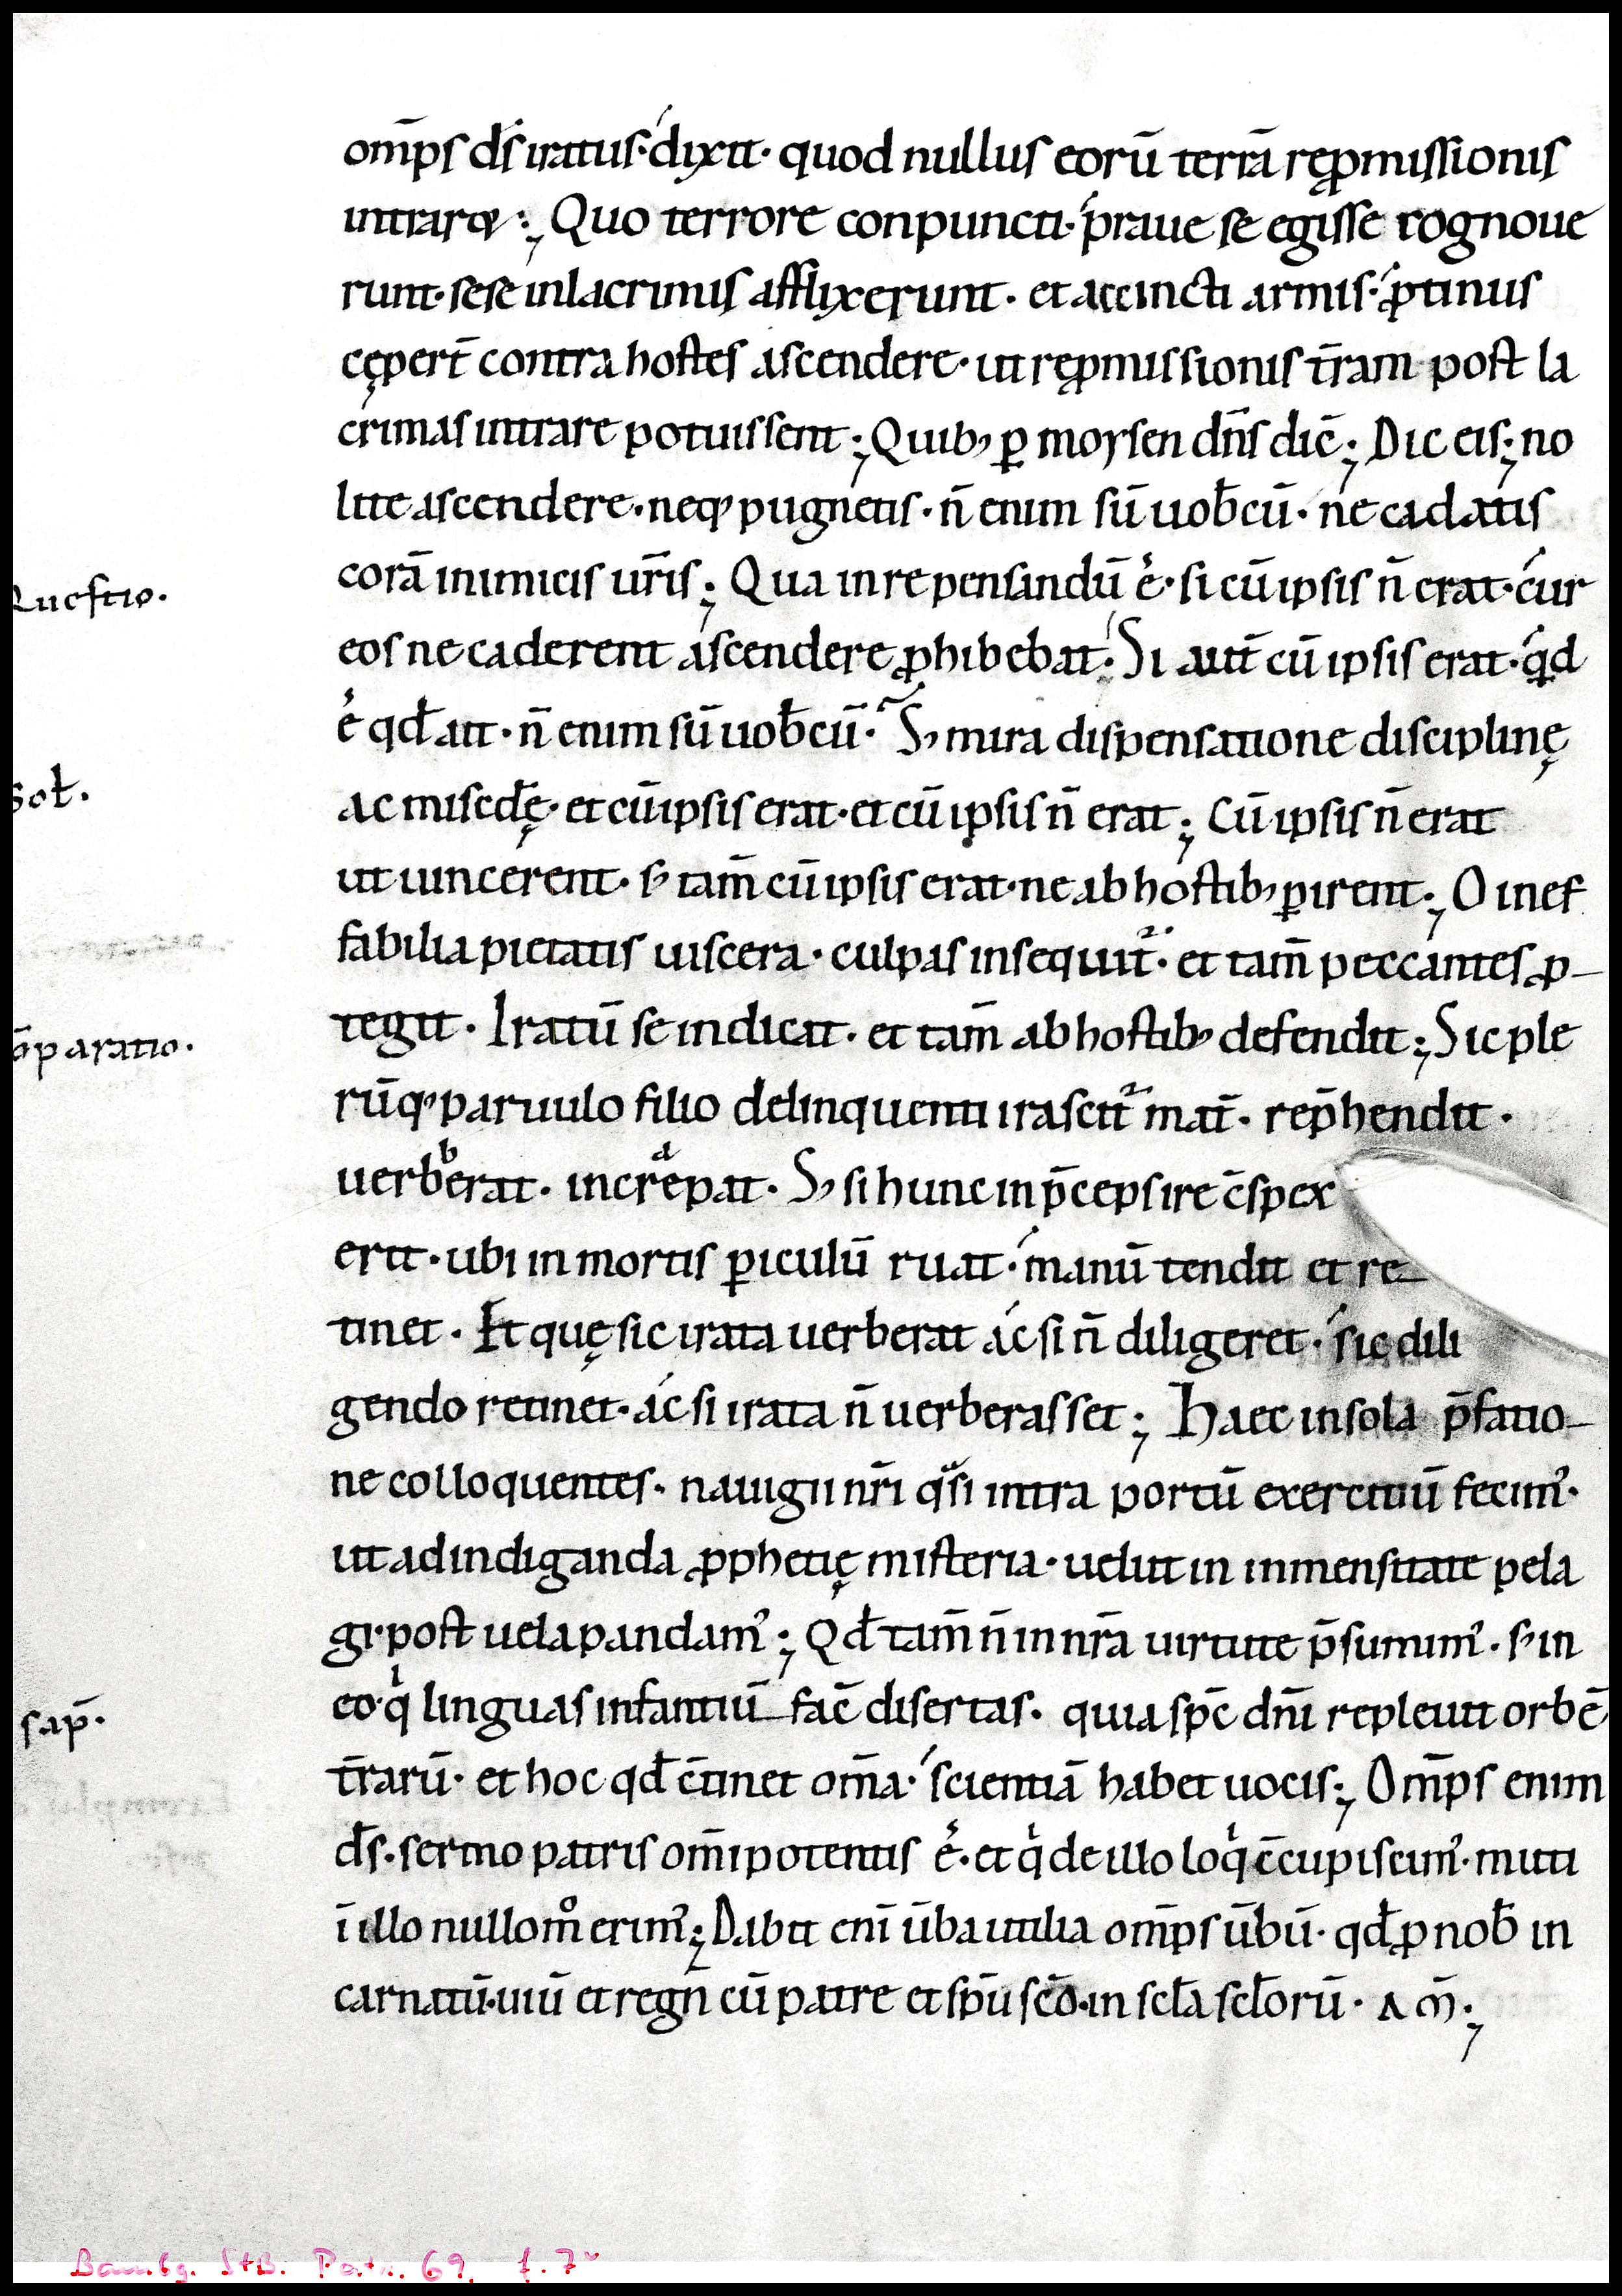 om̄ps d̄s iratus· dixit· quod nullus eorū terrā rep̱missionis
intrarꝫ ·; Quo terrore conpuncti· praue se egisse cognoue
runt· sese in lacrimis afflixerunt· et accincti armis· ꝓtinus
cęper̄t contra hostes ascendere· ut reꝓmissionis t̄ram post la
crimas intrare potuissent; Quib; ꝑ moysen dn̄s dic̄; Dic eis; no
lite ascendere· neq; pugnetis· n̄ enim sū uob̄cū· ne cadatis
Questio.
corā inimicis ur̄is; Qua in re pensandū ē· si cū ipsis n̄ erat· cur
eos ne caderent ascendere ꝓhibebat· Si aut̄ cū ipsis erat· qͥd
ē qđ ait· n̄ enim sū uob̄cū· S; mira dispensatione disciplinę
Sol̄.
ac misc̄dę· et cū ipsis erat· et cū ipsis n̄ erat; Cū ipsis n̄ erat
ut uincerent· s; tam̄ cū ipsis erat· ne ab hostib; ꝑirent; O inef
fabilia pietatis uiscera· culpas insequit᷑· et tam̄ peccantes ꝓ-
ōparatio.
tegit· Iratū se indicat· et tam̄ ab hostib; defendit; Sic ple
rūq; paruulo filio delinquenti irascit᷑ mat̄· rep̄hendit·
uerberat· increpat· S; si hunc in p̄ceps ire c̄spex
erit· ubi in mortis ꝑiculū ruat· manū tendit et re-
tinet· Et quę sic irata uerberat ac si n̄ diligeret· sic dili
gendo retinet· ac si irata n̄ uerberasset; Haec in sola p̄fatio-
ne colloquentes· nauigii nr̄i qͣsi intra portū exercitiū fecim᷒·
ut ad indiganda ꝓphetię misteria· uelut in inmensitate pela
gi· post uela pandam᷒; Qđ tam̄ n̄ in nr̄a uirtute p̄sumim᷒· s; in
sap̄.
eo· qͥ linguas infantiū fac̄ disertas· quia sp̄c dn̄i repleuit orbē
t̄rarū· et hoc qđ c̄tinet om̄a· scientiā habet uocis; Om̄ps enim
d̄s· sermo patris om̄ipotentis ē· et qͥ de illo loqͥ c̄cupiscim᷒· muti
ī illo nullom̊ erim᷒; Dabit enī ūba utilia om̄ps ūbū· qđ ꝓ nob̄ in
carnatū· uiū et regn̄ cū patre et sp̄u sc̄o· in sc̄la sc̄lorū· Am̄;
Bambg. StB. Patr. 69. f. 7v